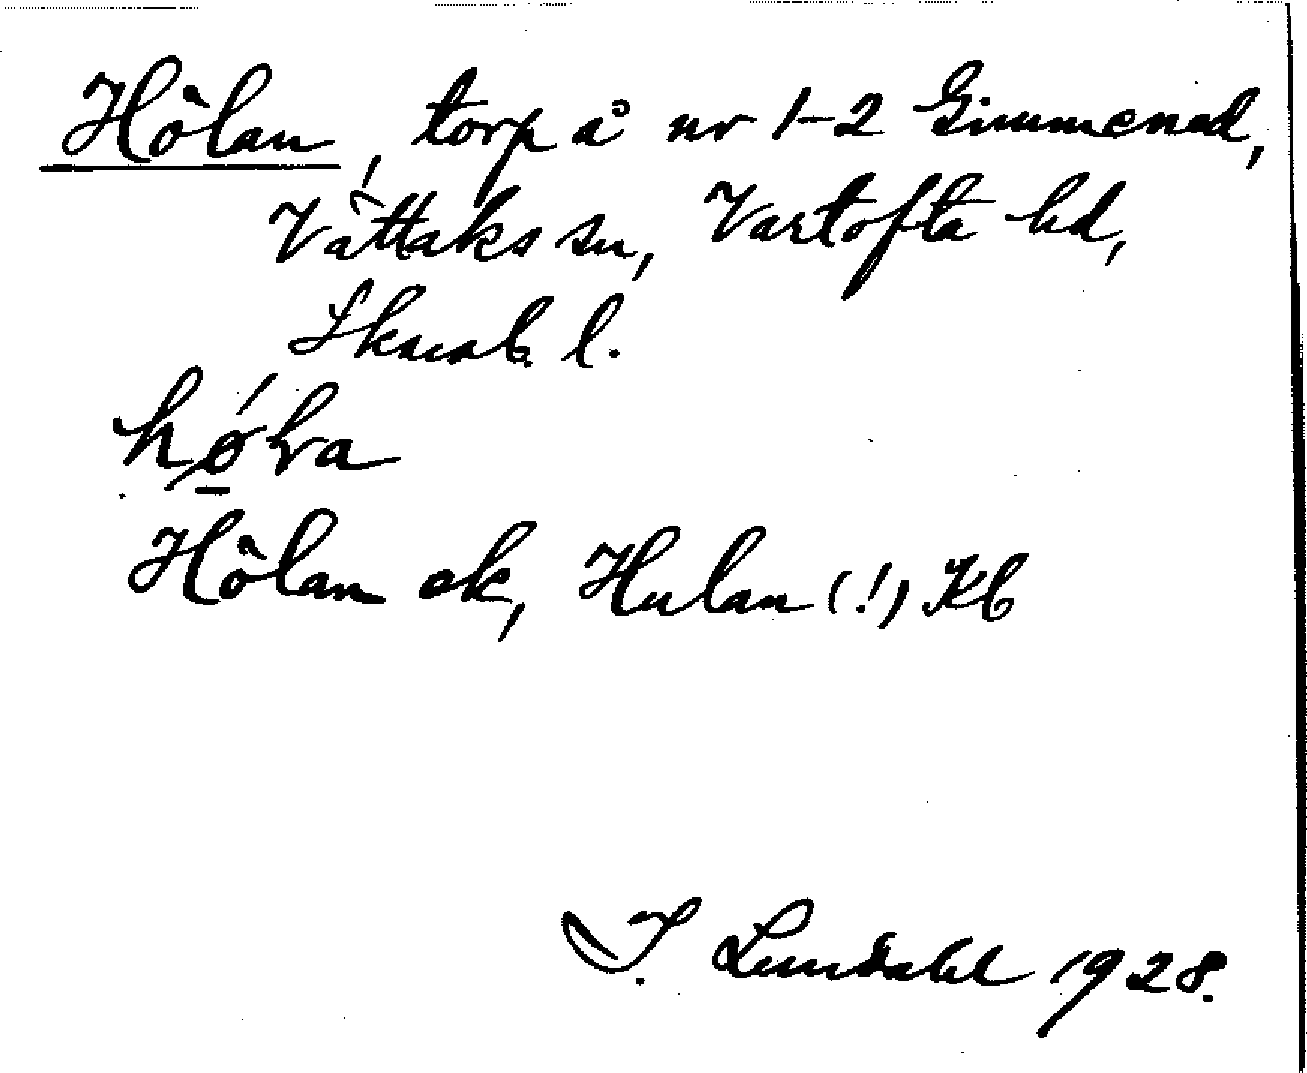 Hölan, torp å nr 1-2 Gimmened,
Vättaks sn, Vartofta hd,
Skarab. l.
hǿlra
Hölan ek, Hulan (!) Kb
I. Lundahl 1928.